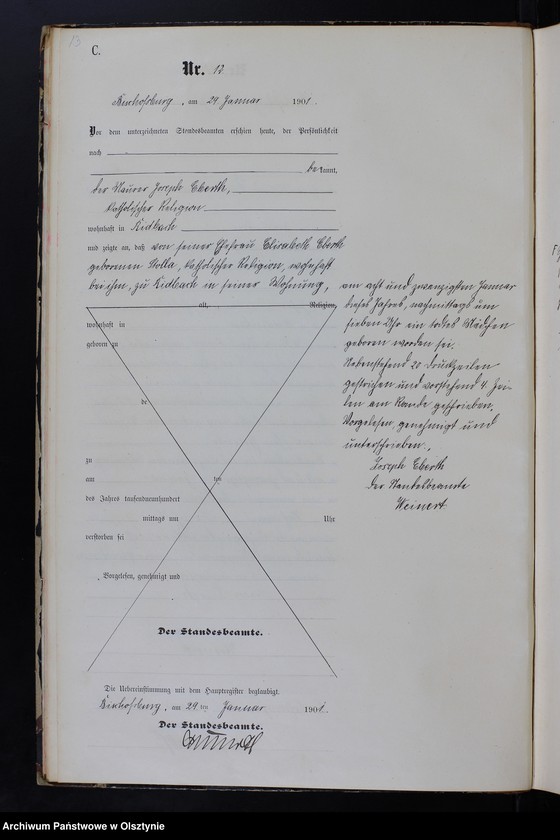 13
C.
Nr. 13.
Bischofsburg, am 29 Januar 1901.
Vor dem unterzeichneten Standesbeamten erschien heute, der Persönlichkeit
nach
bekannt,
der Maurer Joseph Eberth,
katholischer Religion
wohnhaft in Kidbach
und zeigte an, daß von seiner Ehefrau Elisabeth Eberth
geborenen Stolla, katholischer Religion, wohnhaft
bei ihm, zu Kidbach in seiner Wohnung,
am acht und zwanzigsten Januar
dieses Jahres, nachmittags um
sieben Uhr ein todtes Mädchen
geboren worden sei.
Nebenstehend 20 Druckzeilen
gestrichen und vorstehend 4 Zei-
len am Rande geschrieben.
Vorgelesen, genehmigt und
unterschrieben.
Joseph Eberth
Der Standesbeamte
Weinert
alt, Religion,
wohnhaft in
geboren zu
de
zu
am ten
des Jahres tausendneunhundert
mittags um Uhr
verstorben sei
Vorgelesen, genehmigt und
Der Standesbeamte.
Die Uebereinstimmung mit dem Hauptregister beglaubigt.
Bischofsburg, am 29ten Januar 1901.
Der Standesbeamte.
Archiwum Państwowe w Olsztynie